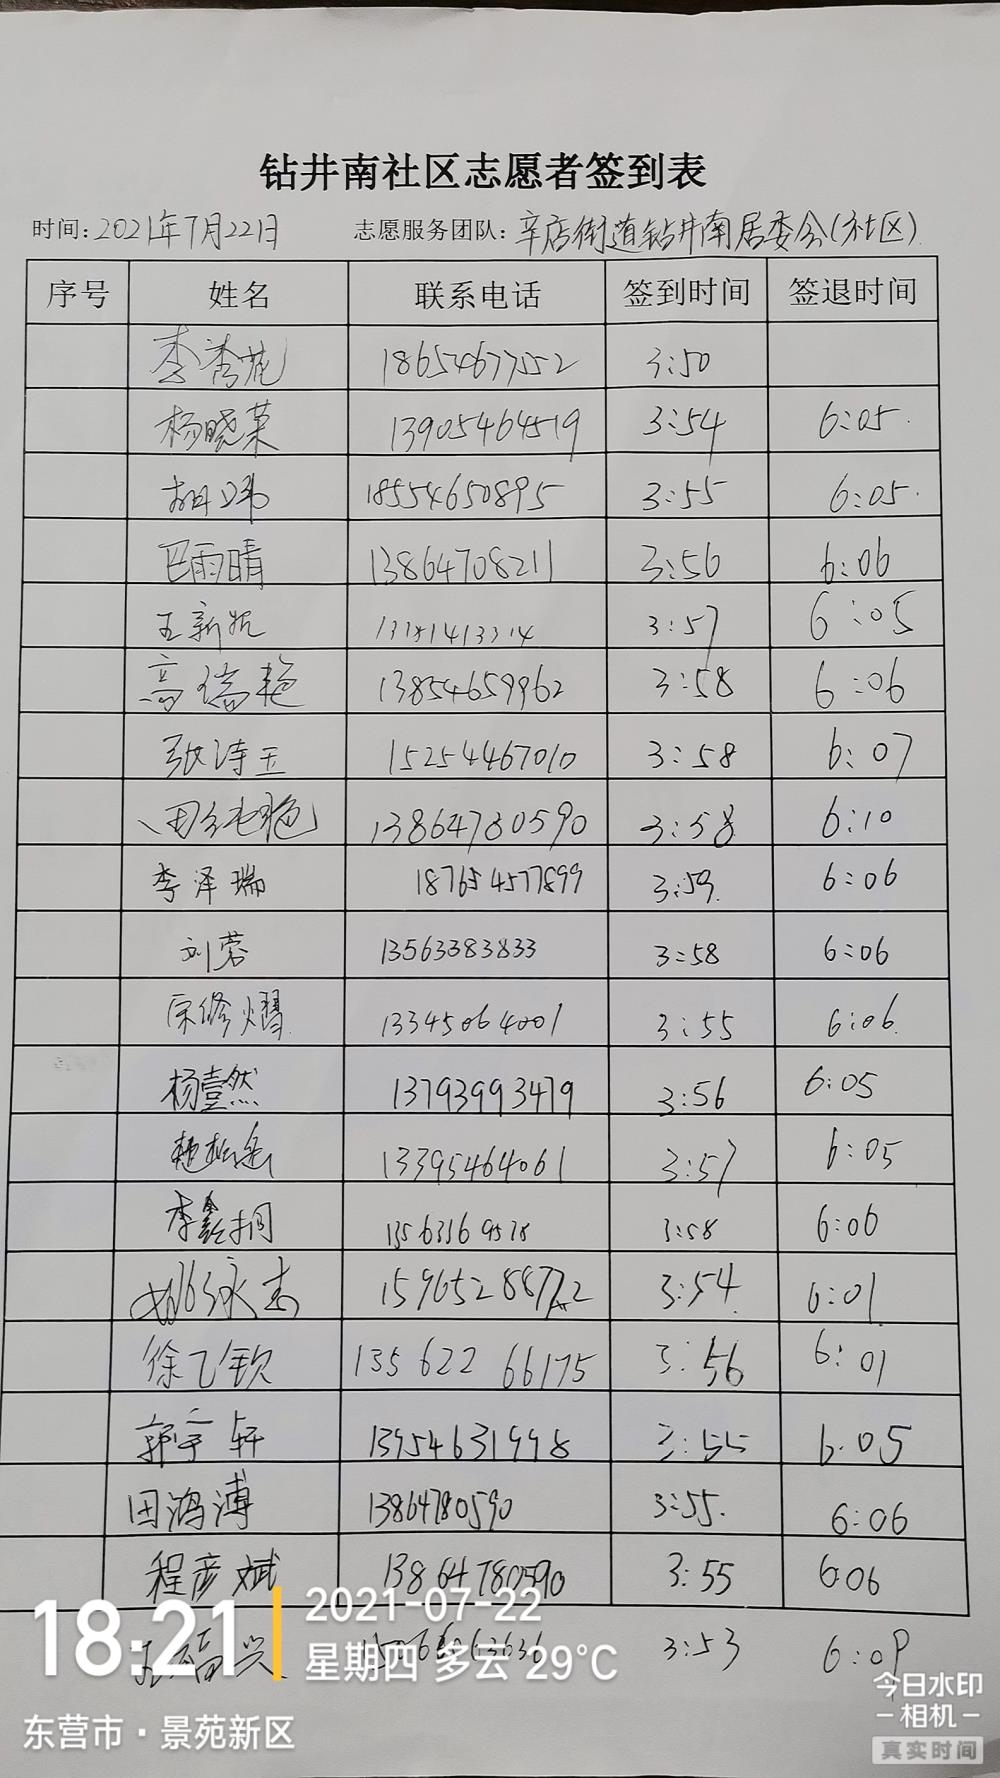 钻井南社区志愿者签到表
时间：2021年7月22日 志愿服务团队：辛店街道钻井南居委会（社区）
序号 姓名 联系电话 签到时间 签退时间
李秀苑 18654677552 3:50
杨晓荣 13905464519 3:54 6:05
18554650895 3:55 6:05
巴雨晴 13864708211 3:56 6:06
王新妮 3:57 6:05
高瑞艳 13854659962 3:58 6:06
张诗玉 15254467010 3:58 6:07
田纯艳 13864780590 3:58 6:10
李泽瑞 187654577899 3:59 6:06
刘蓉 13563383833 3:58 6:06
宋修熠 13345064001 3:55 6:06
杨壹然 13793993479 3:56 6:05
13395464061 3:57 6:05
李鑫桐 13563169578 3:58 6:06
姚永志 3:54 6:01
徐乙钦 13562266175 3:56 6:01
郭宇轩 13954631998 3:55 6:05
田鸿溥 13864780590 3:55 6:06
程彦斌 13864780590 3:55 6:06
3:53 6:09
18:21 2021-07-22
星期四 多云 29°C
东营市·景苑新区
今日水印
-相机-
真实时间